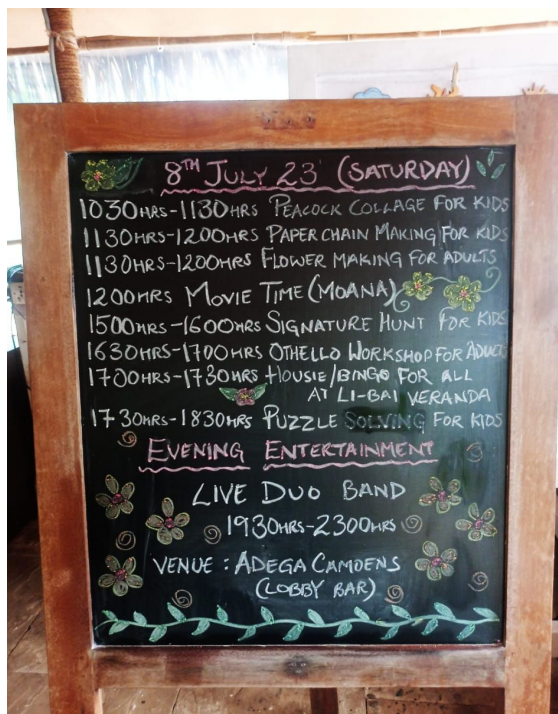 8TH JULY 23 (SATURDAY)
1030HRS-1130HRS PEACOCK COLLAGE FOR KIDS
1130HRS-1200HRS PAPER CHAIN MAKING FOR KIDS
1130HRS-1200HRS FLOWER MAKING FOR ADULTS
1200HRS MOVIE TIME (MOANA)
1500HRS-1600HRS SIGNATURE HUNT FOR KIDS
1630HRS-1700HRS OTHELLO WORKSHOP FOR ADULTS
1700HRS-1730HRS HOUSIE/BINGO FOR ALL
AT LI-BAI VERANDA
1730HRS-1830HRS PUZZLE SOLVING FOR KIDS
EVENING ENTERTAINMENT
LIVE DUO BAND
1930HRS-2300HRS
VENUE : ADEGA CAMOENS
(LOBBY BAR)